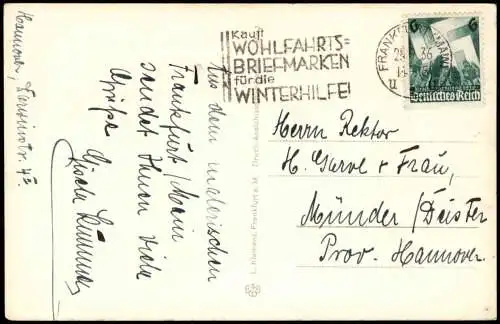 Hannover,
Aus dem malerischen
Frankfurt/Main
sendet Ihnen viele
Grüße
Kauft
WOHLFAHRTS=
BRIEFMARKEN
für die
WINTERHILFE!
FRANKFURT (MAIN)
36
u
6 6
Deutsches Reich
Herrn Rektor
H. Garve & Frau,
Münder/Deister
Prov. Hannover.
L. Klement, Frankfurt a. M.